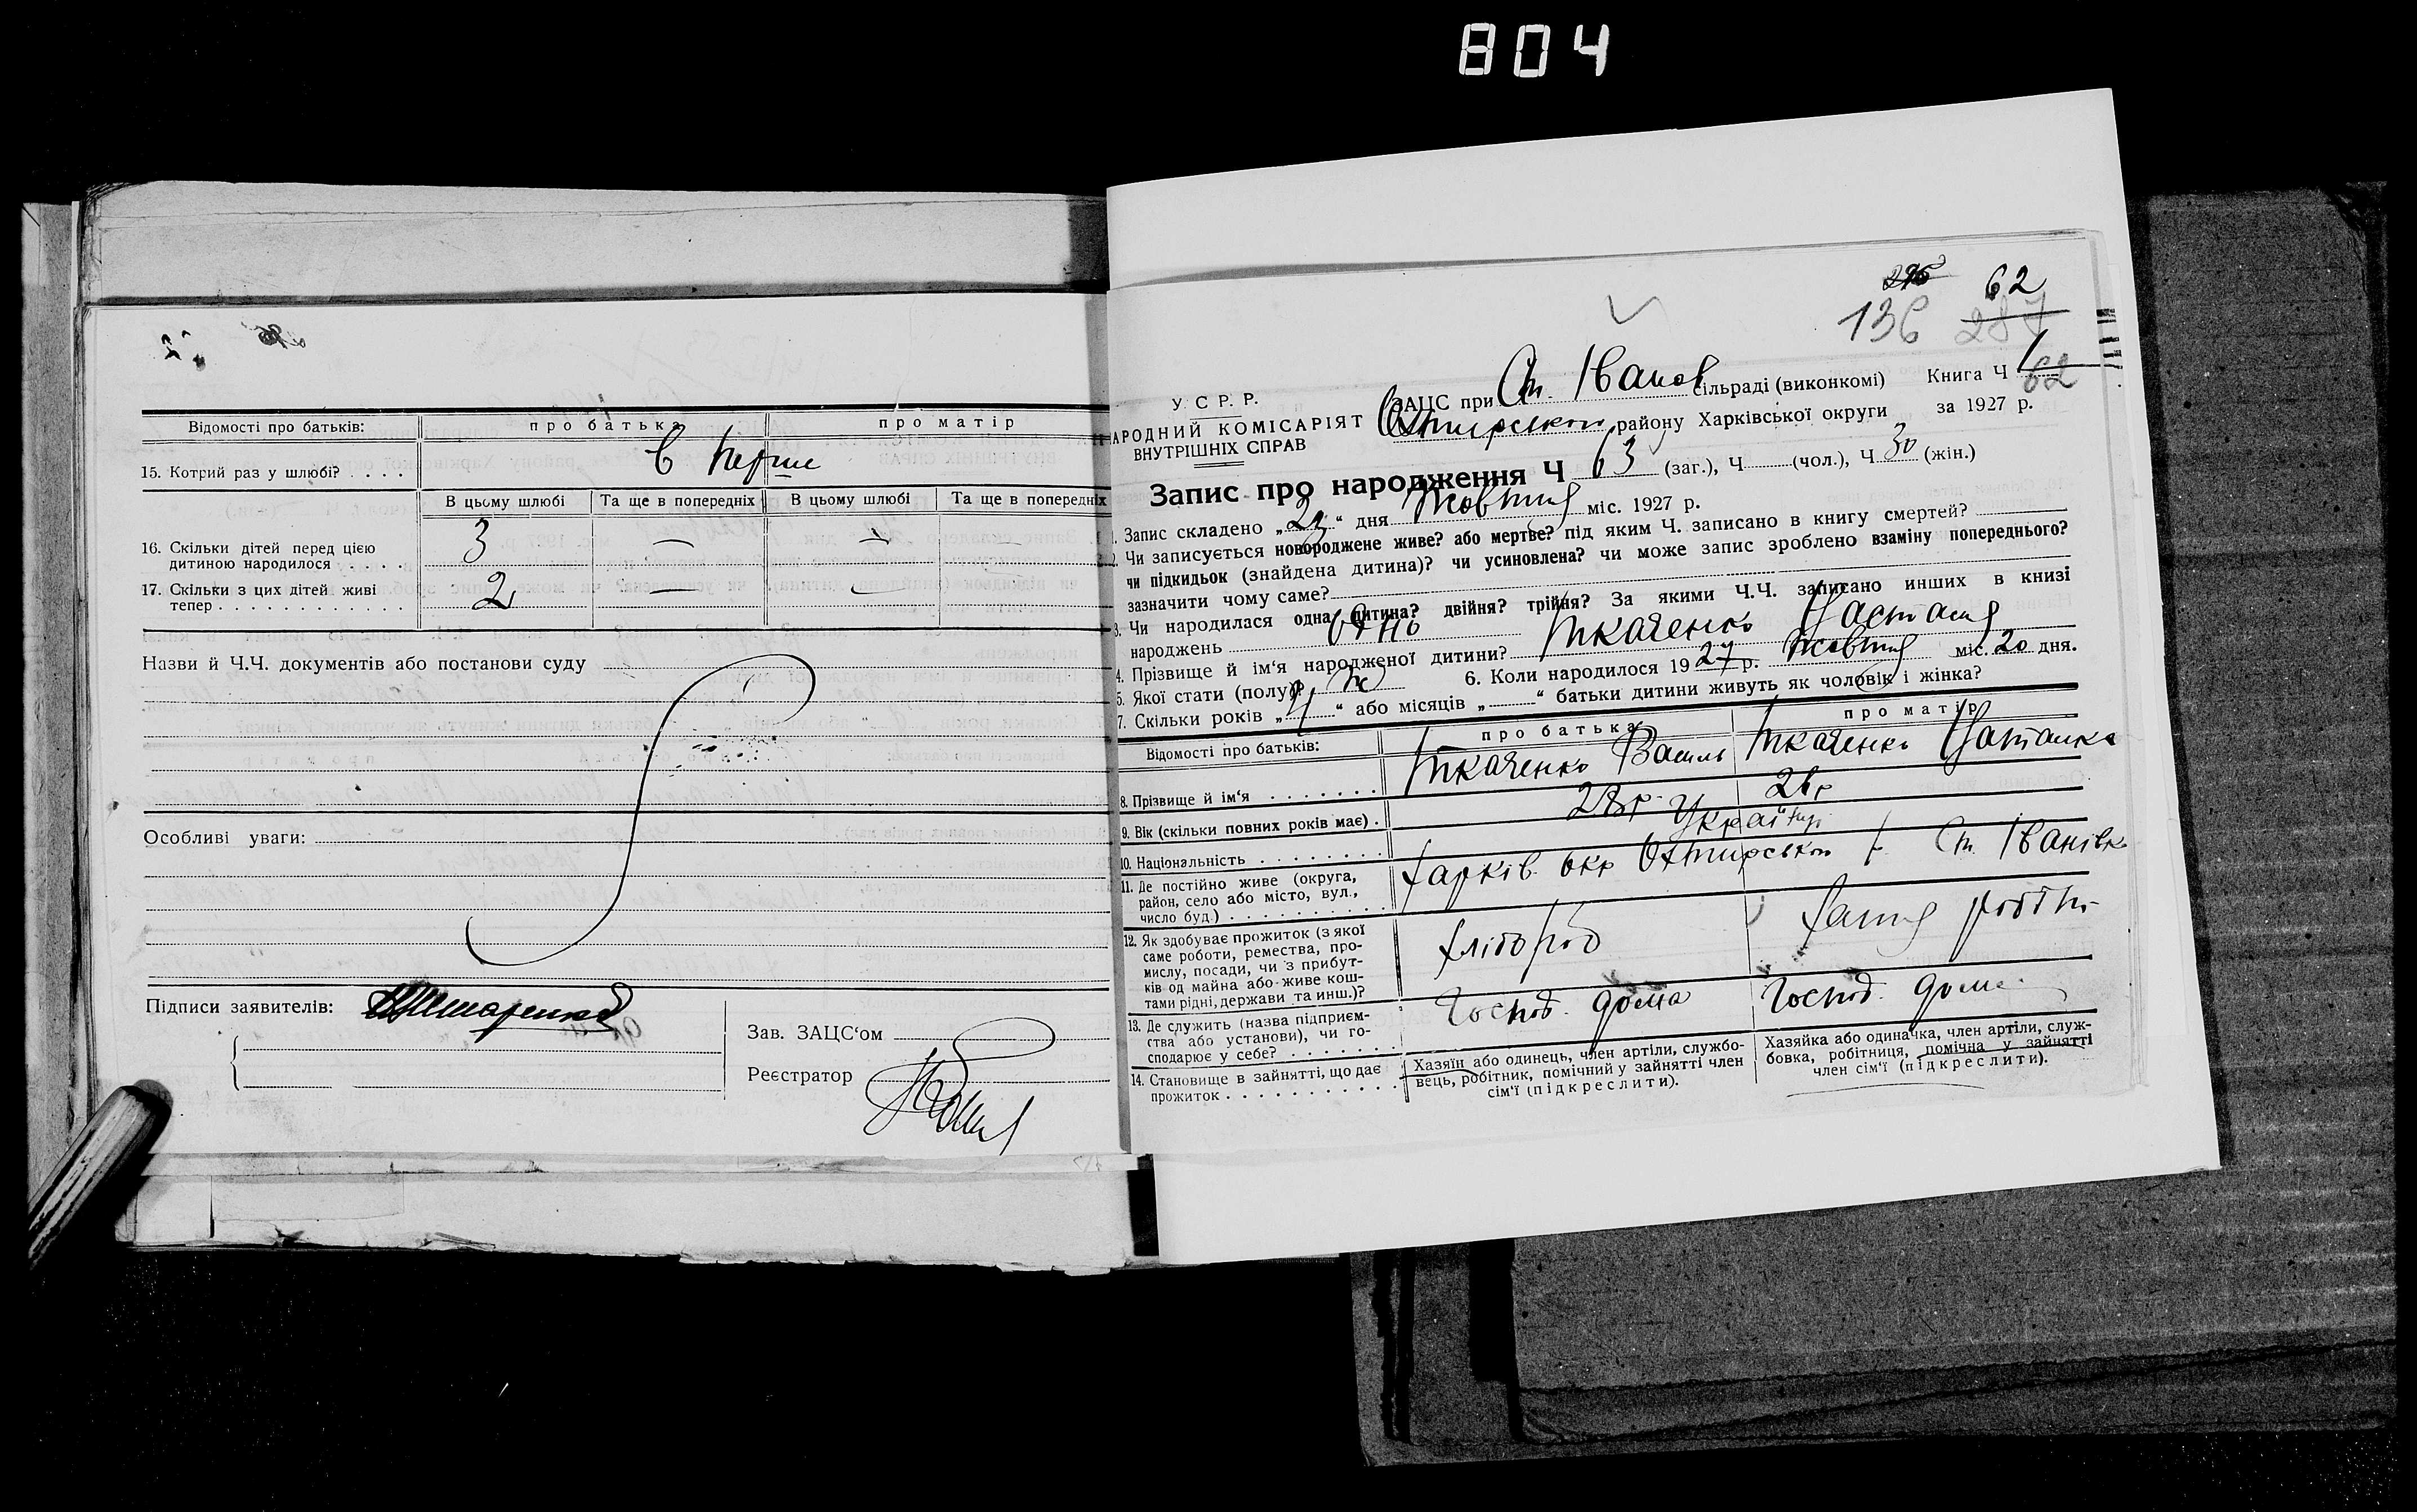 804
Відомості про батьків: про батька про матір
15. Котрий раз у шлюбі? . . . . В перше
В цьому шлюбі Та ще в попередніх В цьому шлюбі Та ще в попередніх
16. Скільки дітей перед цією
дитиною народилося . . . . 3 — — —
17. Скільки з цих дітей живі
тепер . . . . . . . . . . . . . 2 — —
Назви й Ч.Ч. документів або постанови суду
Особливі уваги:
Підписи заявителів:
Зав. ЗАЦС‘ом
Реєстратор
62
136 287
У. С. Р. Р.
АРОДНИЙ КОМІСАРІЯТ
ВНУТРІШНІХ СПРАВ
ЗАЦС при Ст. Іванов сільраді (виконкомі)
Охтирськом району Харківської округи
Книга Ч 1 62
за 1927 р.
Запис про народження Ч 63 (заг.), Ч (чол.), Ч 30 (жін.)
1. Запис складено „ “ дня Жовтня міс. 1927 р.
2. Чи записується новороджене живе? або мертве? під яким Ч. записано в книгу смертей?
чи підкидьок (знайдена дитина)? чи усиновлена? чи може запис зроблено взаміну попереднього?
зазначити чому саме?
3. Чи народилася одна дитина? двійня? трійня? За якими Ч.Ч. записано инших в книзі
народжень одно
4. Прізвище й ім‘я народженої дитини? Ткаченко Настася
5. Якої стати (полу)? ж 6. Коли народилося 1927 р. Жовтня міс. 20 дня.
7. Скільки років „ “ або місяців „ “ батьки дитини живуть як чоловік і жінка?
Відомості про батьків: про батька про матір
8. Прізвище й ім‘я . . . . . . . Ткаченко Василь Ткаченко Наталка
9. Вік (скільки повних років має) . 28 р.
10. Національність . . . . . . . . Україн
11. Де постійно живе (округа,
район, село або місто, вул.,
число буд.) . . . . . . . . . . Харків. окр Охтирськом р. Ст. Іванівка
12. Як здобуває прожиток (з якої
саме роботи, ремества, про-
мислу, посади, чи з прибут-
ків од майна або живе кош-
тами рідні, держави та инш.)? хлібороб хатня робітн
13. Де служить (назва підприєм-
ства або установи), чи го-
сподарює у себе? . . . . . . . Господ. дома Господ. дома
14. Становище в зайнятті, що дає
прожиток . . . . . . . . . . . .
Хазяїн або одинець, член артіли, службо-
вець, робітник, помічний у зайнятті член
сім‘ї (підкреслити).
Хазяйка або одиначка, член артіли, служ-
бовка, робітниця, помічна у зайнятті
член сім‘ї (підкреслити).